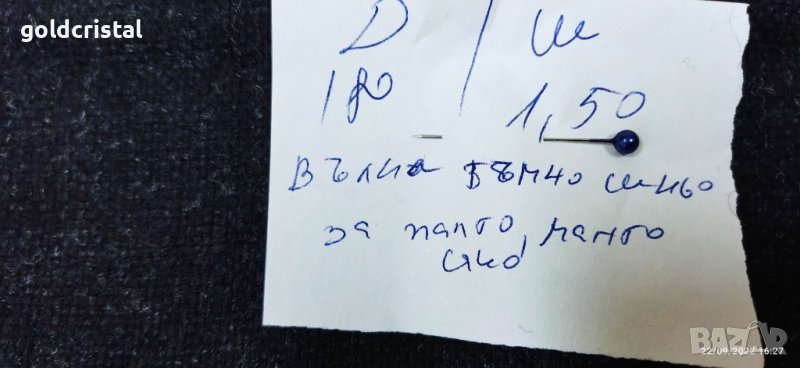 goldcristal
Д / Ш
180 1,50
Вълна тъмно синьо
за палто, манто
сако
BAZAR
22/09/2022 16:27